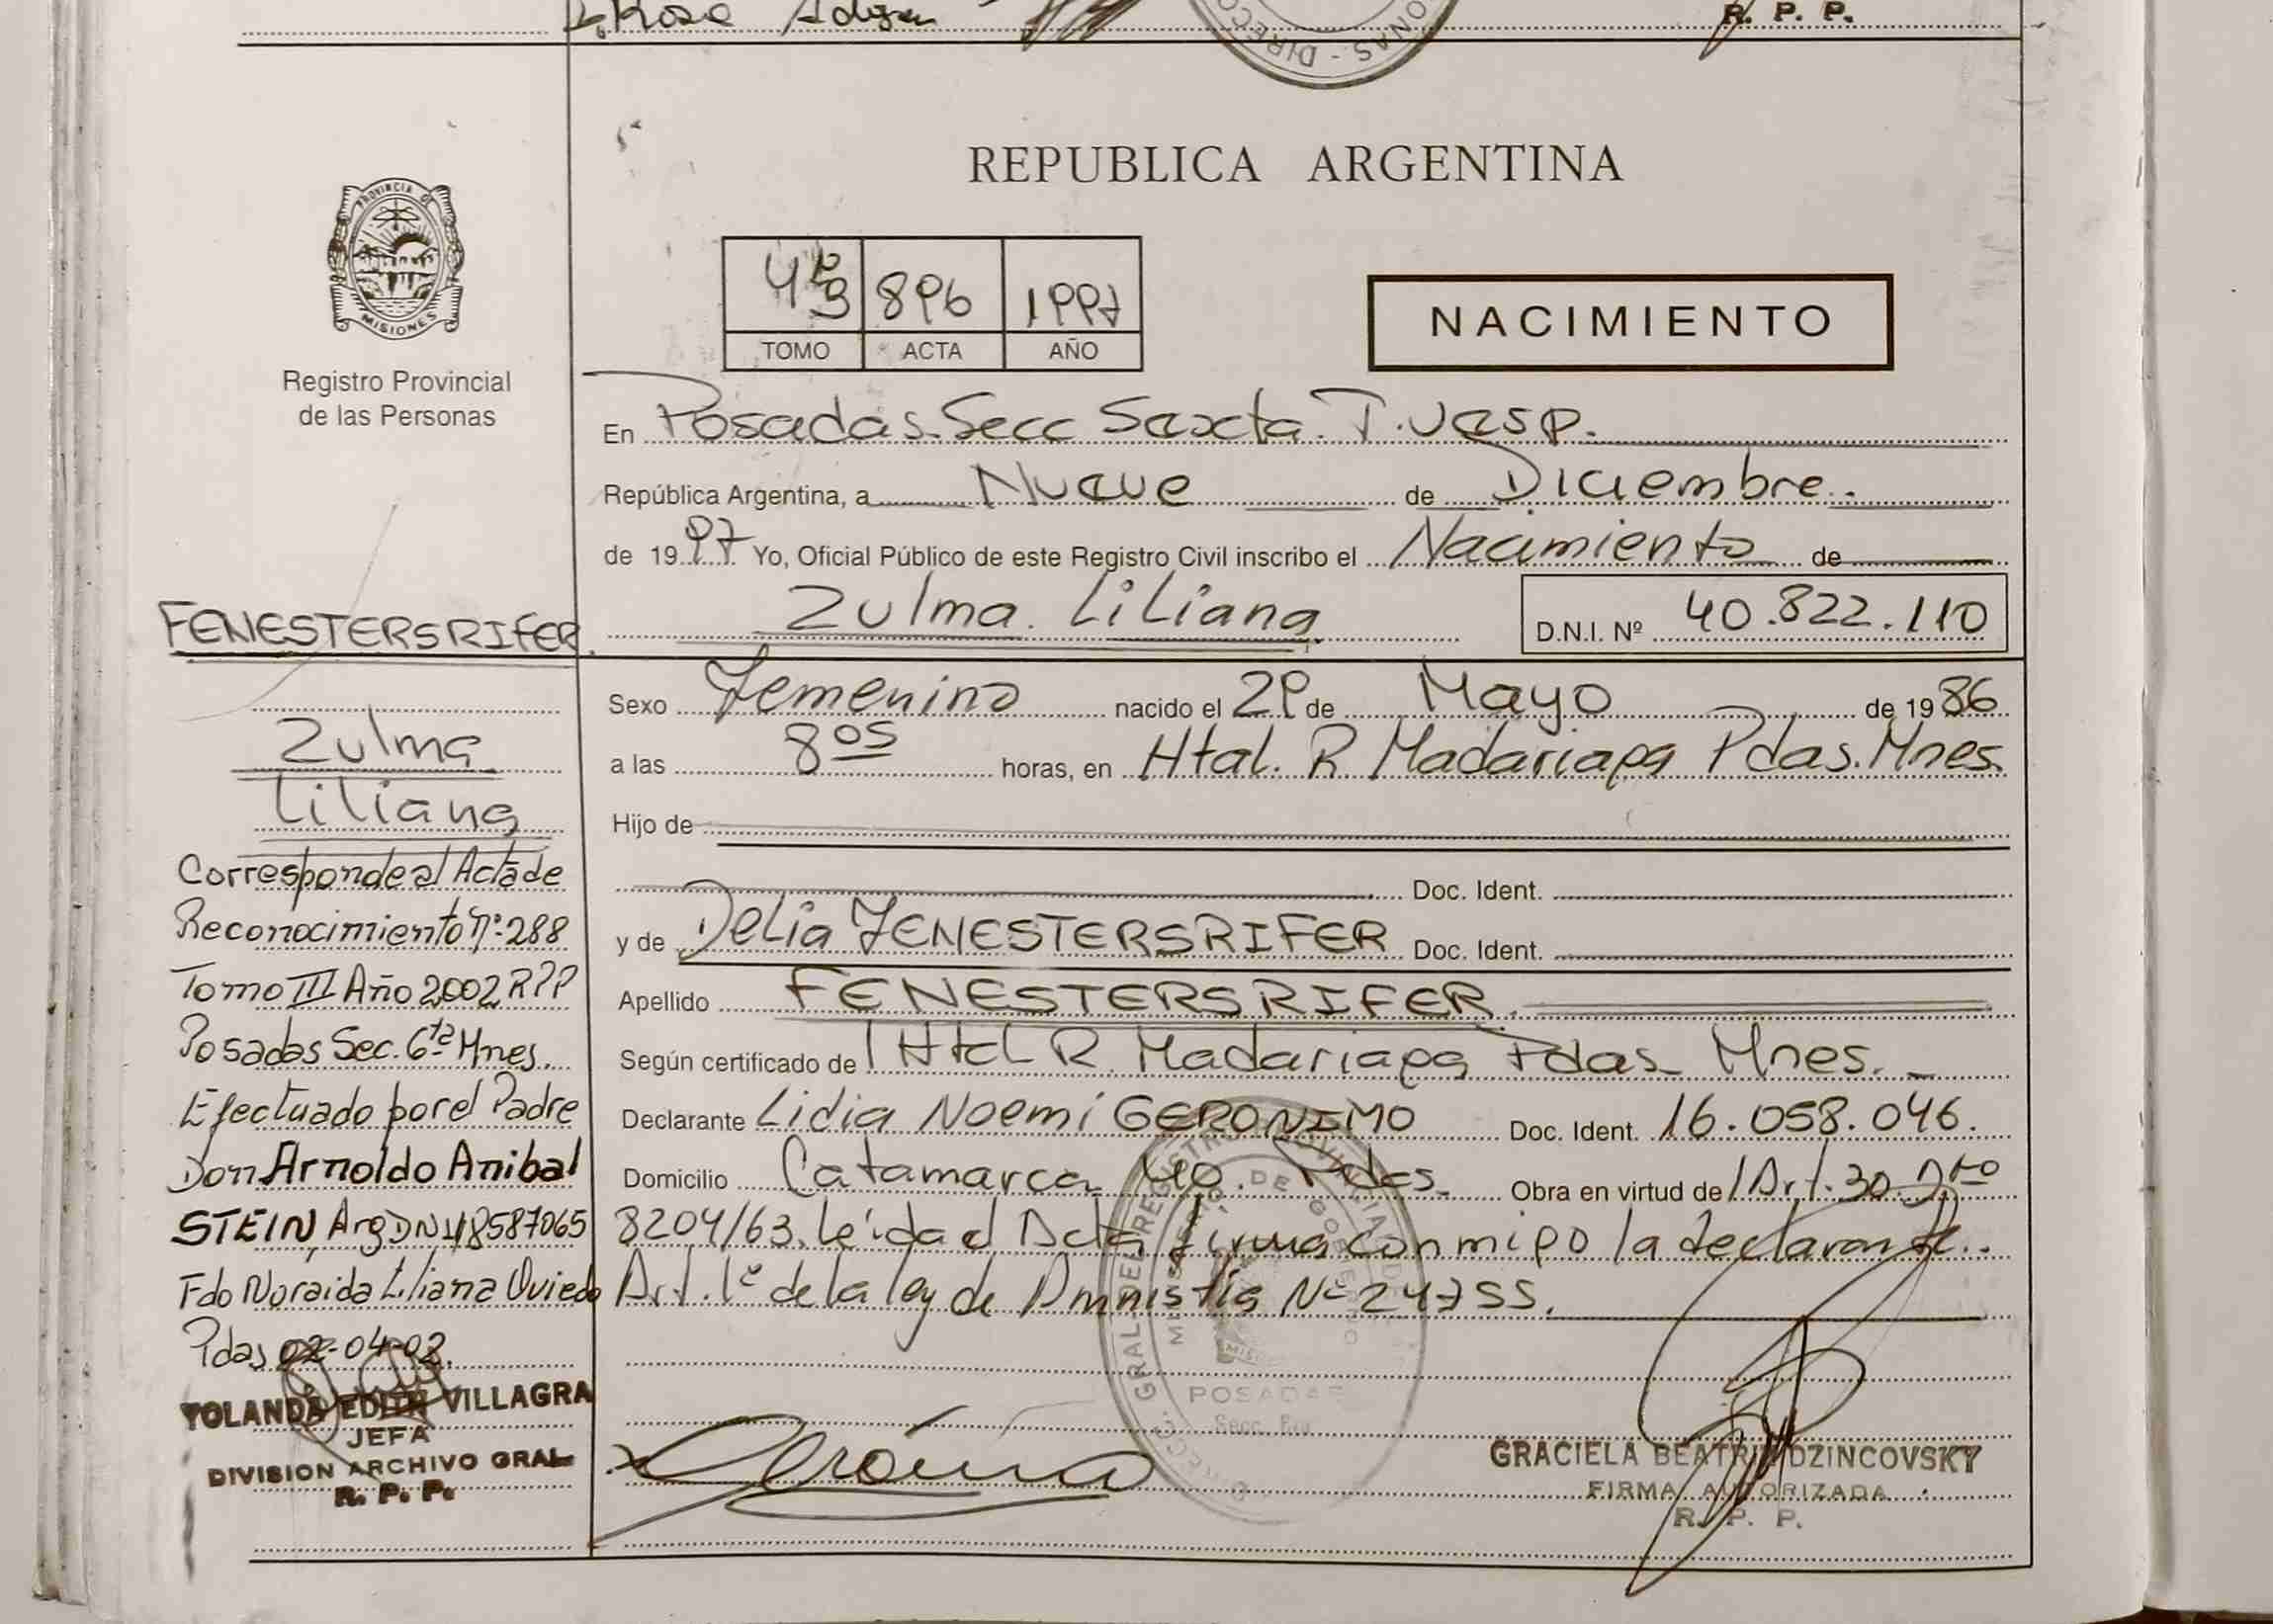 Rosa
R. P. P.
ONAS - DIRECC
REPUBLICA ARGENTINA
PROVINCIA DE
MISIONES
Registro Provincial
de las Personas
896 1997
TOMO ACTA AÑO
NACIMIENTO
En Posadas. Secc Saxcta.
República Argentina, a Nueve de Diciembre.
de 1997 Yo, Oficial Público de este Registro Civil inscribo el Nacimiento de
Zulma Liliana
D.N.I. Nº 40.822.110
Sexo Femenino nacido el 29 de Mayo de 1986
a las 8 os horas, en Htal. R Madariaga Pdas. Mnes.
Hijo de
Doc. Ident.
y de Delia FENESTERSRIFER Doc. Ident.
Apellido FENESTERSRIFER.
Según certificado de l Htal R. Madariaga Pdas Mnes.
Declarante Lidia Noemí GERONIMO Doc. Ident. 16.058.046.
Domicilio Catamarca 40. Pdas. Obra en virtud de l Art. 30. Dto
8204/63. leída el Acta firma conmigo la declarante.
Art. 1º de la ley de Amnistía Nº 24755.
FENESTERSRIFER.
Zulma
Liliana
Corresponde al Acta de
Reconocimiento Nº 288
Tomo III Año 2002 RPP
Posadas Sec. 6ta Mnes.
Efectuado por el Padre
Don Arnoldo Anibal
STEIN Arg DNI 18587065
Fdo Noraida Liliana Oviedo
Pdas 02-04-02.
YOLANDA EDITH VILLAGRA
JEFA
DIVISION ARCHIVO GRAL
R. P. P.
POSADAS
GRACIELA BEATRIZ DZINCOVSKY
FIRMA AUTORIZADA
R. P. P.